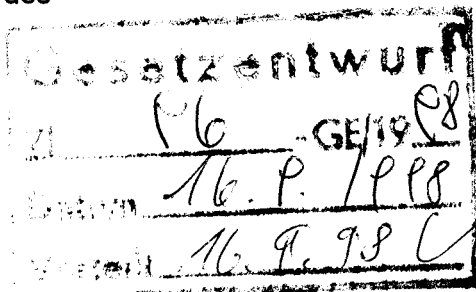 des
Gesetzentwurf
Zl. 96 -GE/19 98
Datum 16. 9. 1998
Verteilt 16. 9. 98